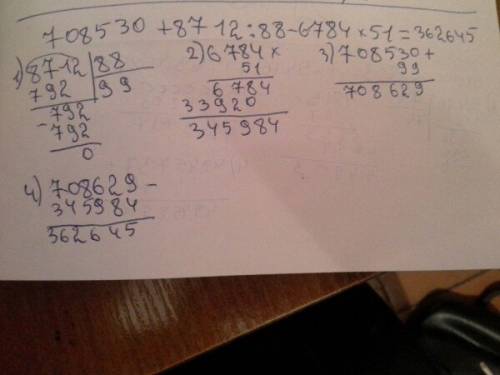 708530 + 8712 : 88 - 6784 × 51 = 362645
1) 8712 | 88
792 | 99
792
- 792
0
2) 6784 ×
51
6784
33920
345984
3) 708530 +
99
708629
4) 708629 -
345984
362645